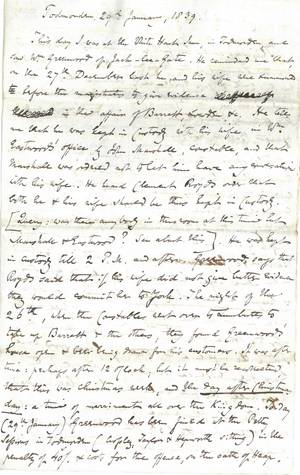 Todmorden 29th January, 1839.
This day I was at the White Hart Inn, in Todmorden, and
saw Wm Greenwood of Jack-lea-Gate. He reminded me that
on the 27th December last he and his wife were summoned
to before the magistrates to give evidence
in the affair of Barrett &c. He tells
me that he was kept in custody with his wife, in Wm
Eastwood's office by John Marshall, constable, and that
Marshall was ordered not to let him have any conversation
with his wife. He heard Clement Royds order that
both he & his wife should be thus kept in custody.
[Query: was there anybody in this room at this time but
Marshall & Eastwood? See about this] He was kept
in custody till 2 P.M. and Greenwood says that
Royds said that if his wife did not give better evidence
they would commit her to York. The night of the
26th, when the constables went over to
take of Barrett & the others, they found Greenwood's
house open & beer being drawn for his customers. It was after
time: perhaps after 12 o'clock; but it must be recollected
that this was Christmas week, and the day after Christmas
day: a time of merriment all over the Kingdom. Today
(29th January) Greenwood has been fined at the Petty
Sessions in Todmorden (Crossley, Taylor & Heyworth sitting) in the
penalty of 40/- & costs for the offence, on the oath of Heap.